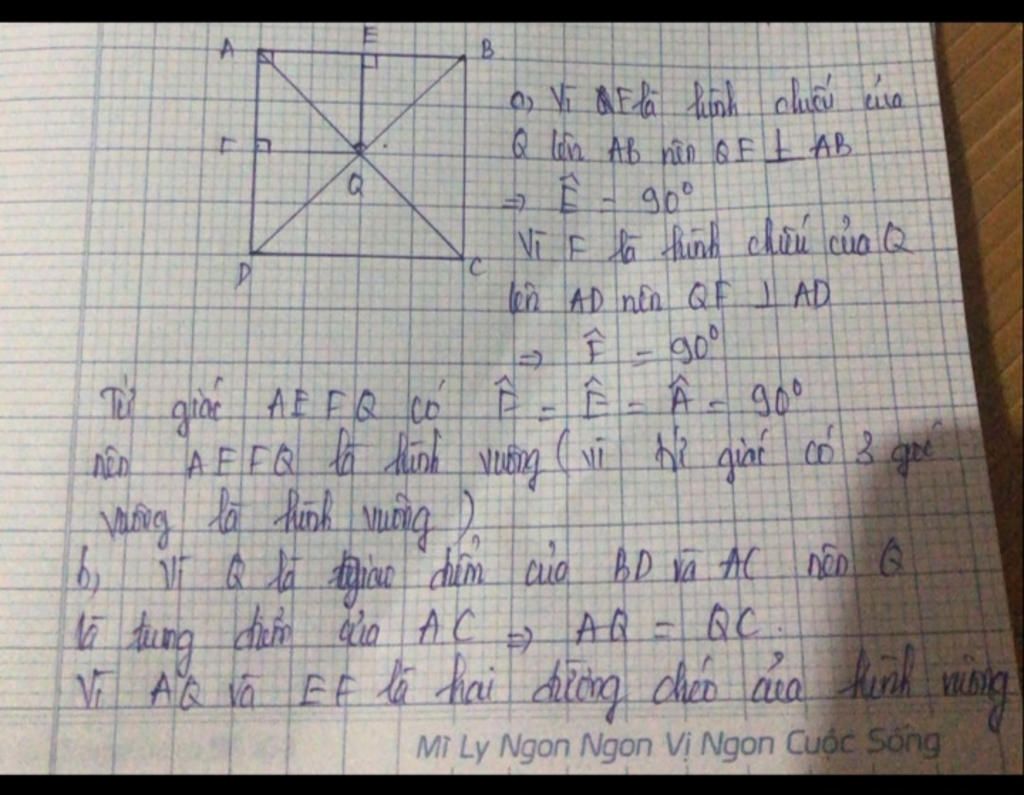 A E B
F
Q
D C
a, Vì E là hình chiếu của
Q lên AB nên QE ⊥ AB
⇒ Ê = 90°
Vì F là hình chiếu của Q
lên AD nên QF ⊥ AD
⇒ F̂ = 90°
Tứ giác AEFQ có F̂ = Ê = Â = 90°
nên AEFQ là hình vuông (vì tứ giác có 3 góc
vuông là hình vuông)
b, Vì Q là giao điểm của BD và AC nên Q
là trung điểm của AC ⇒ AQ = QC.
Vì AQ và EF là hai đường chéo của hình vuông
Mì Ly Ngon Ngon Vị Ngon Cuộc Sống